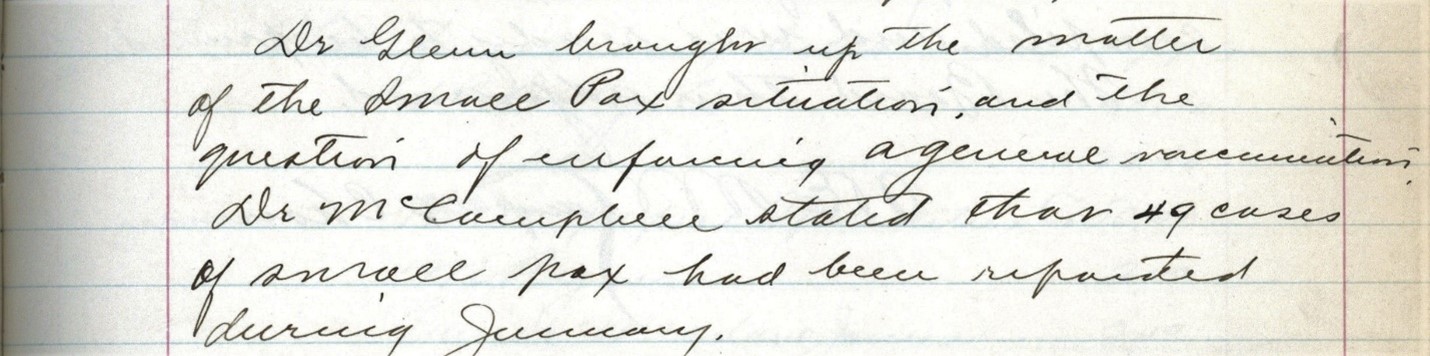 Dr Glenn brought up the matter
of the Small Pox situation, and the
question of enforcing a general vaccination.
Dr McCampbell stated that 49 cases
of small pox had been reported
during January.